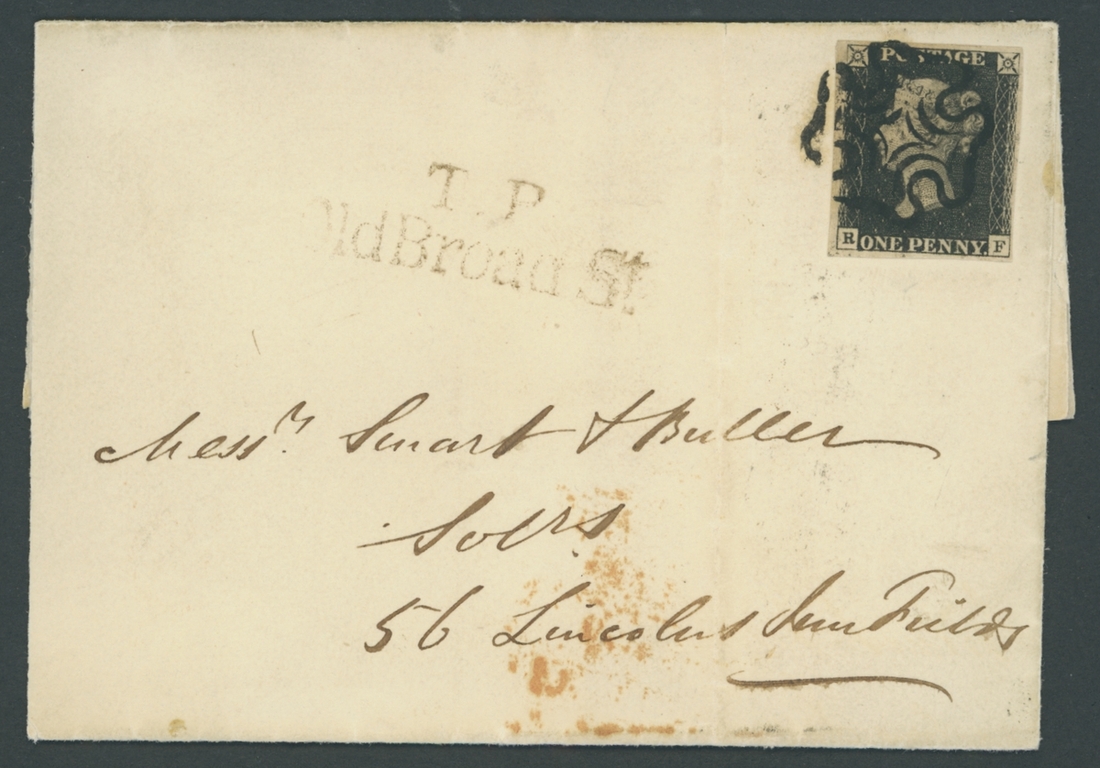 POSTAGE
R ONE PENNY. F
T.P
Old Broad St
Messrs. Smart & Buller
Solrs
56 Lincolns Inn Fields